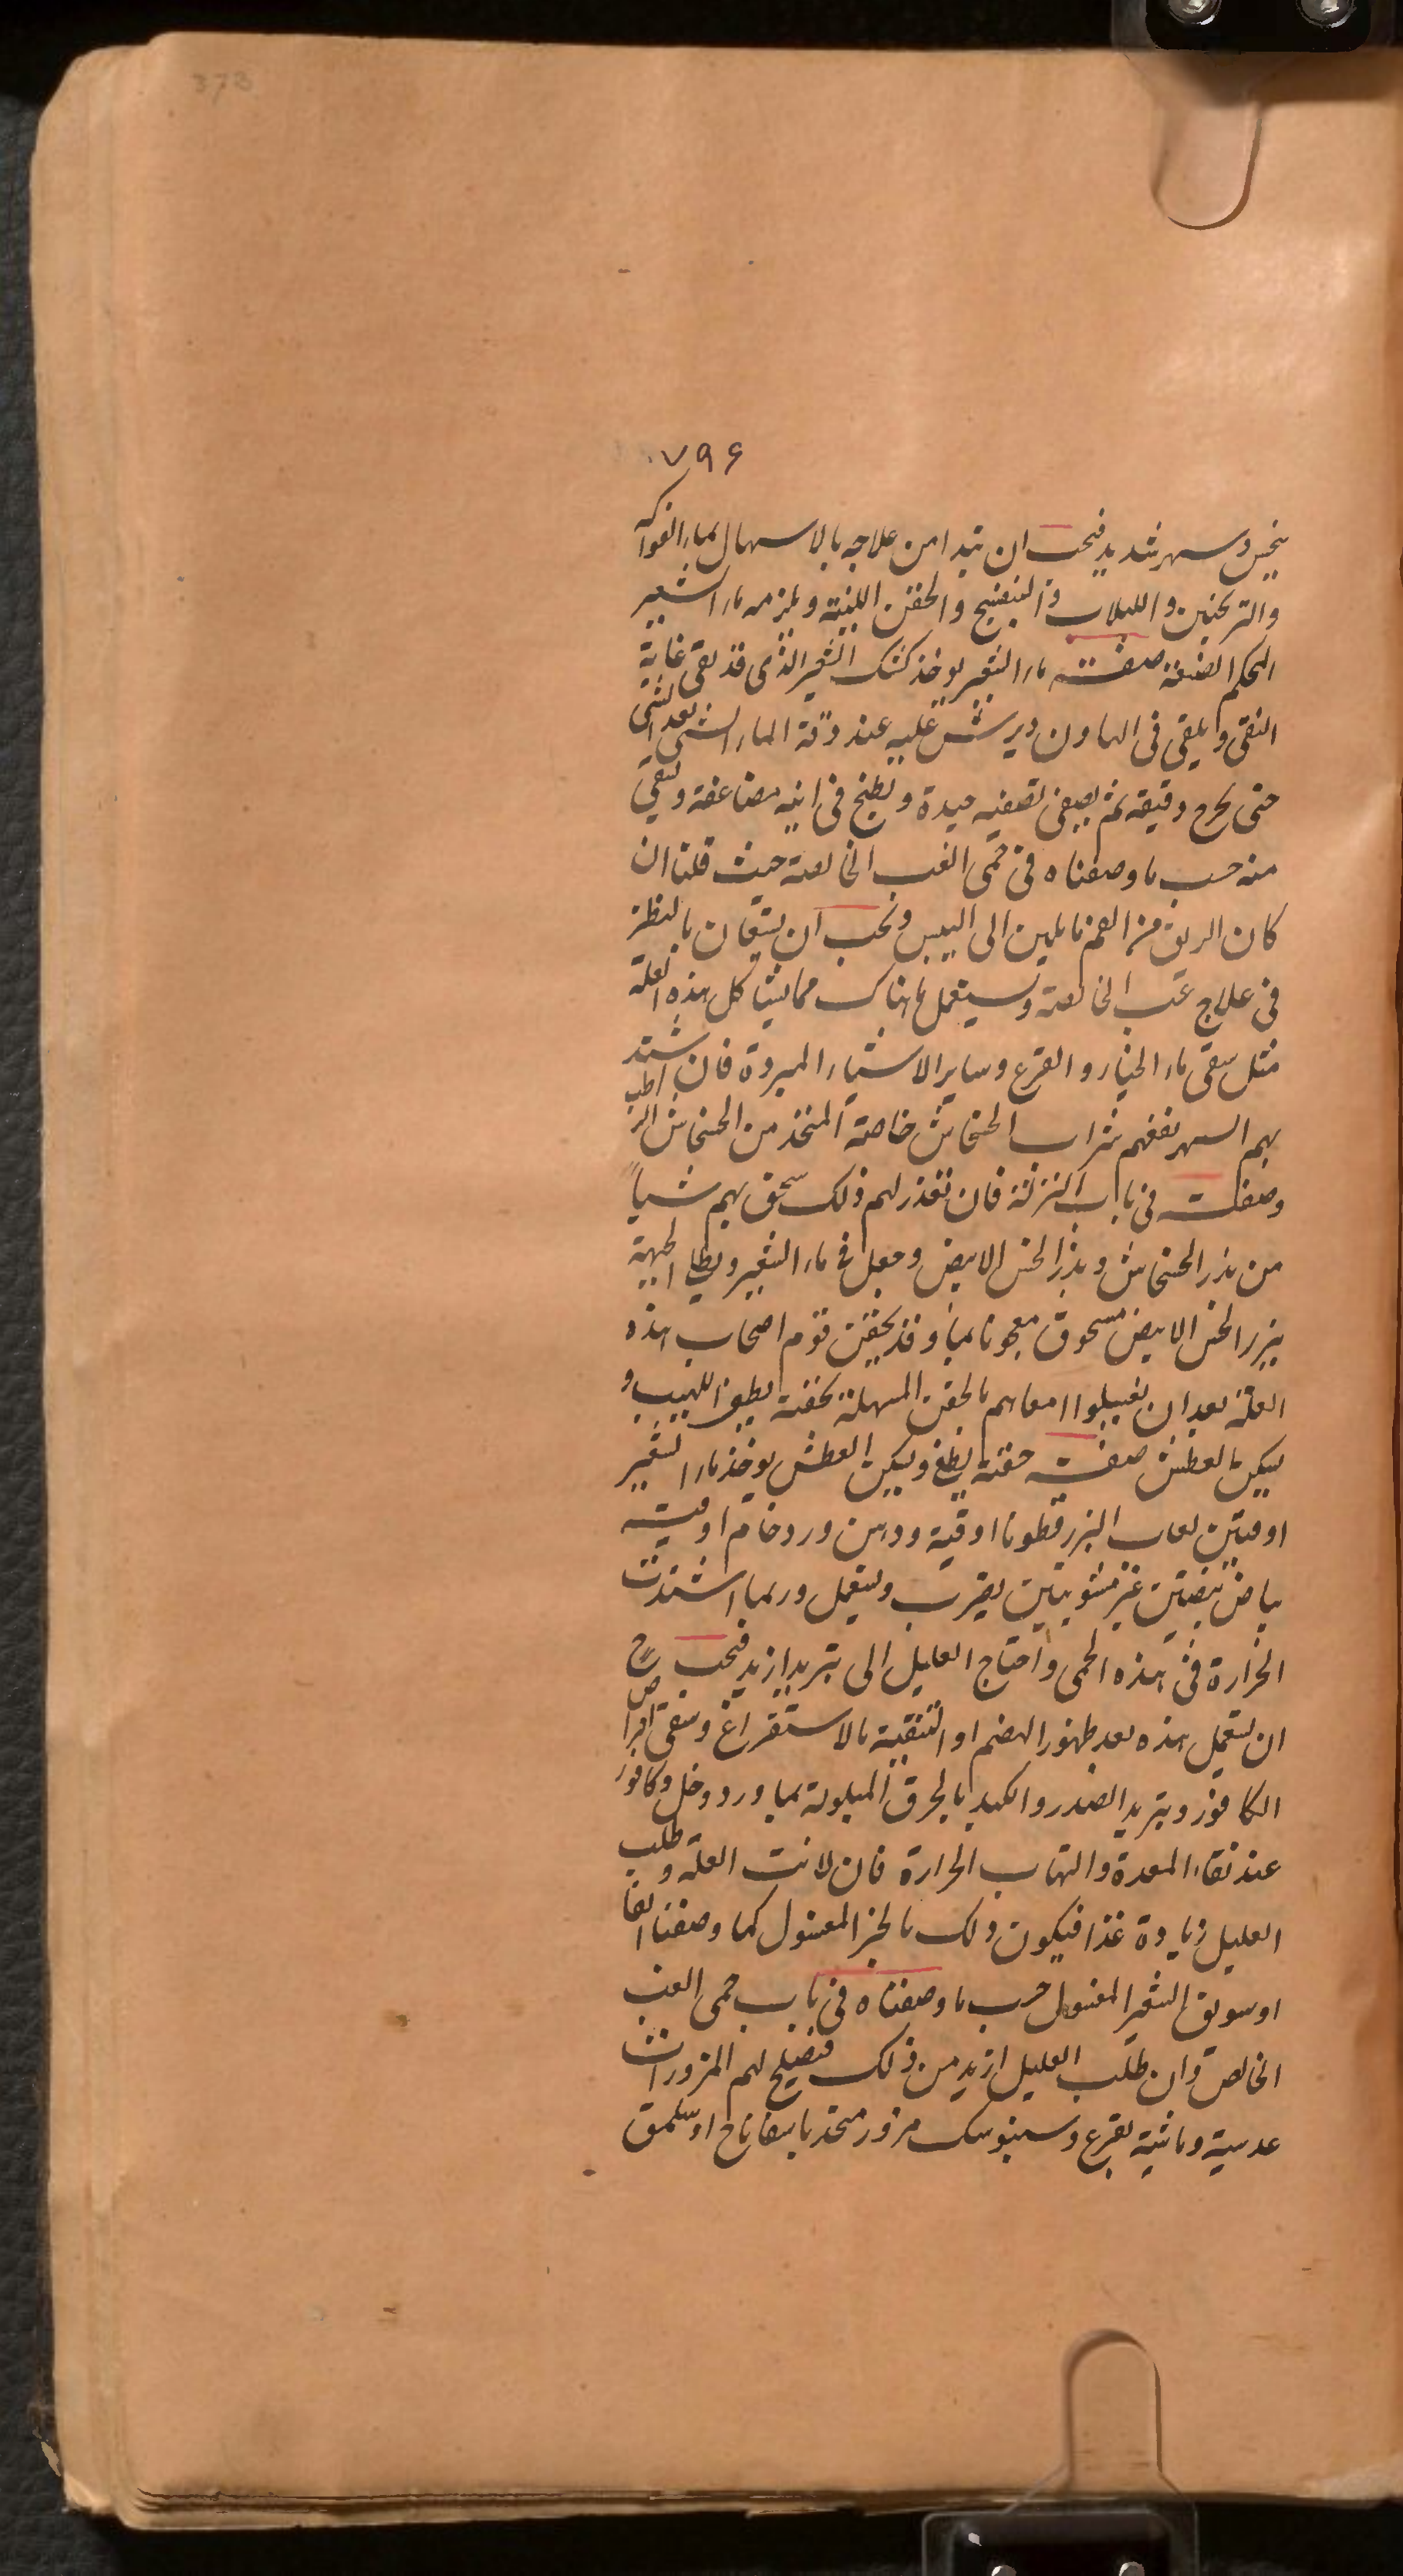 373
۷۹۶
وسهر شديد فيجب ان تبدا من علاجه بالاسهال بماء الفواكه
والترنجبين واللبلاب والبنفسج والحقن اللينة ويلزمه ماء الشعير
المحكم الصنعة صفة ماء الشعير يوخذ كشك الشعير الذى قد نقى غاية
النقى ويلقى فى الهاون ويرش عليه عند دقه الماء الشى بعد الشى
حتى يخرج دقيقه ثم يصفى تصفيه جيدة ويطبخ فى انيه مضاعفة ويسقى
منه حسب ما وصفناه فى حمى الغب الخالصة حيث قلنا ان
كان الريق من الفم مايلين الى اليبس ويجب ان يستعان بالنظر
فى علاج غب الخالصة ويستعمل ما هناك مما يشاكل هذه العلة
مثل سقى ماء الخيار والقرع وساير الاشياء المبردة فان اشتد
بهم السهر نفعهم شراب الخشخاش خاصة المتخذ من الخشخاش الرطب
وصفت فى باب النزلة فان تعذر لهم ذلك سحق لهم شياً
من بذر الخشخاش وبذر الخس الابيض وجعل فى ماء الشعير ويطلى الجبهة
ببزر الخس الابيض مسحوق معجونا بماء وقد يحقن قوم اصحاب هذه
العلة بعد ان يغسلوا امعاهم بالحقن المسهلة بحقنة يطفى اللهيب و
يسكن العطش صفت حقنة يطفى ويسكن العطش يوخذ ماء الشعير
اوقيتين لعاب البزر قطونا اوقية ودهن ورد خام اوقيه
بياض بيضتين غير مشويتين يضرب ويستعمل وربما اشتدت
الحرارة فى هذه الحمى واحتاج العليل الى تبريد ازيد فيجب ح
ان يستعمل هذه بعد ظهور الهضم او التنقية بالاستفراغ وسقى اقراص
الكافور وتبريد الصدر والكبد بالخرق المبلولة بماء ورد وخل وكافور
عند نقاء المعدة والتهاب الحرارة فان لانت العلة وطلب
العليل زيادة غذا فيكون ذلك بالخبز المغسول كما وصفنا انفا
او سويق الشعير المغسول حسب ما وصفناه فى باب حمى الغب
الخالص وان طلب العليل ازيد من ذلك فتصلح لهم المزورات
عدسية وماشية بقرع وسنبوسك مزور متخذ باسفاناخ او سلق